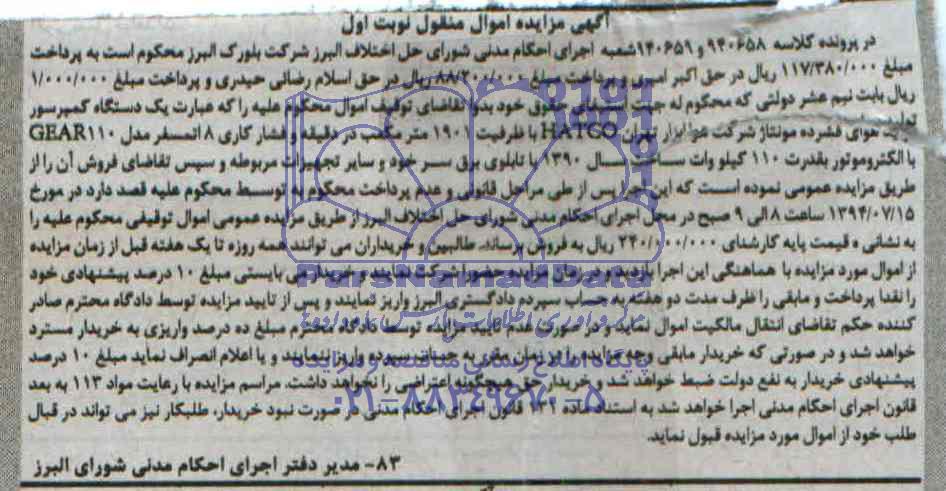 آگهی مزایده اموال منقول نوبت اول
در پرونده کلاسه ۹۴۰۶۵۸ و ۹۴۰۶۵۹ شعبه اجرای احکام مدنی شورای حل اختلاف البرز شرکت بلورک البرز محکوم است به پرداخت
مبلغ ۱۱۷/۳۸۰/۰۰۰ ریال در حق اکبر امیری و پرداخت مبلغ ۸۸/۲۰۰/۰۰۰ ریال در حق اسلام رضائی حیدری و پرداخت مبلغ ۱/۰۰۰/۰۰۰
ریال بابت نیم عشر دولتی که محکوم له جهت استیفای حقوق خود بدوا تقاضای توقیف اموال محکوم علیه را که عبارت یک دستگاه کمپرسور
تولید هوای فشرده مونتاژ شرکت هوا ابزار تهران HATCO با ظرفیت ۱۹۰۱ متر مکعب در دقیقه و فشار کاری ۸ اتمسفر مدل GEAR۱۱۰
با الکتروموتور بقدرت ۱۱۰ کیلو وات ساخت سال ۱۳۹۰ با تابلوی برق سر خود و سایر تجهیزات مربوطه و سپس تقاضای فروش آن را از
طریق مزایده عمومی نموده است که این اجرا پس از طی مراحل قانونی و عدم پرداخت محکوم به توسط محکوم علیه قصد دارد در مورخ
۱۳۹۴/۰۷/۱۵ ساعت ۸ الی ۹ صبح در محل اجرای احکام مدنی شورای حل اختلاف البرز از طریق مزایده عمومی اموال توقیفی محکوم علیه را
به نشانی ه قیمت پایه کارشناسی ۲۴۰/۰۰۰/۰۰۰ ریال به فروش برساند. طالبین و خریداران می توانند همه روزه تا یک هفته قبل از زمان مزایده
از اموال مورد مزایده با هماهنگی این اجرا بازدید و در زمان مزایده حضورا شرکت نمایند و خریدار می بایستی مبلغ ۱۰ درصد پیشنهادی خود
را نقدا پرداخت و مابقی را ظرف مدت دو هفته به حساب سپرده دادگستری البرز واریز نمایند و پس از تایید مزایده توسط دادگاه محترم صادر
کننده حکم تقاضای انتقال مالکیت اموال نماید و در صورت عدم تایید مزایده توسط دادگاه محترم مبلغ ده درصد واریزی به خریدار مسترد
خواهد شد و در صورتی که خریدار مابقی وجه مزایده را در زمان مقرر به حساب سپرده واریز ننمایند و یا اعلام انصراف نماید مبلغ ۱۰ درصد
پیشنهادی خریدار به نفع دولت ضبط خواهد شد و خریدار حق هیچگونه اعتراضی را نخواهد داشت. مراسم مزایده با رعایت مواد ۱۱۳ به بعد
قانون اجرای احکام مدنی اجرا خواهد شد به استناد ماده ۱۳۱ قانون اجرای احکام مدنی در صورت نبود خریدار، طلبکار نیز می تواند در قبال
طلب خود از اموال مورد مزایده قبول نماید.
۸۳- مدیر دفتر اجرای احکام مدنی شورای البرز
ParsNamadData
پایگاه اطلاع رسانی مناقصه و مزایده
۰۲۱-۸۸۳۴۹۶۷۰-۵